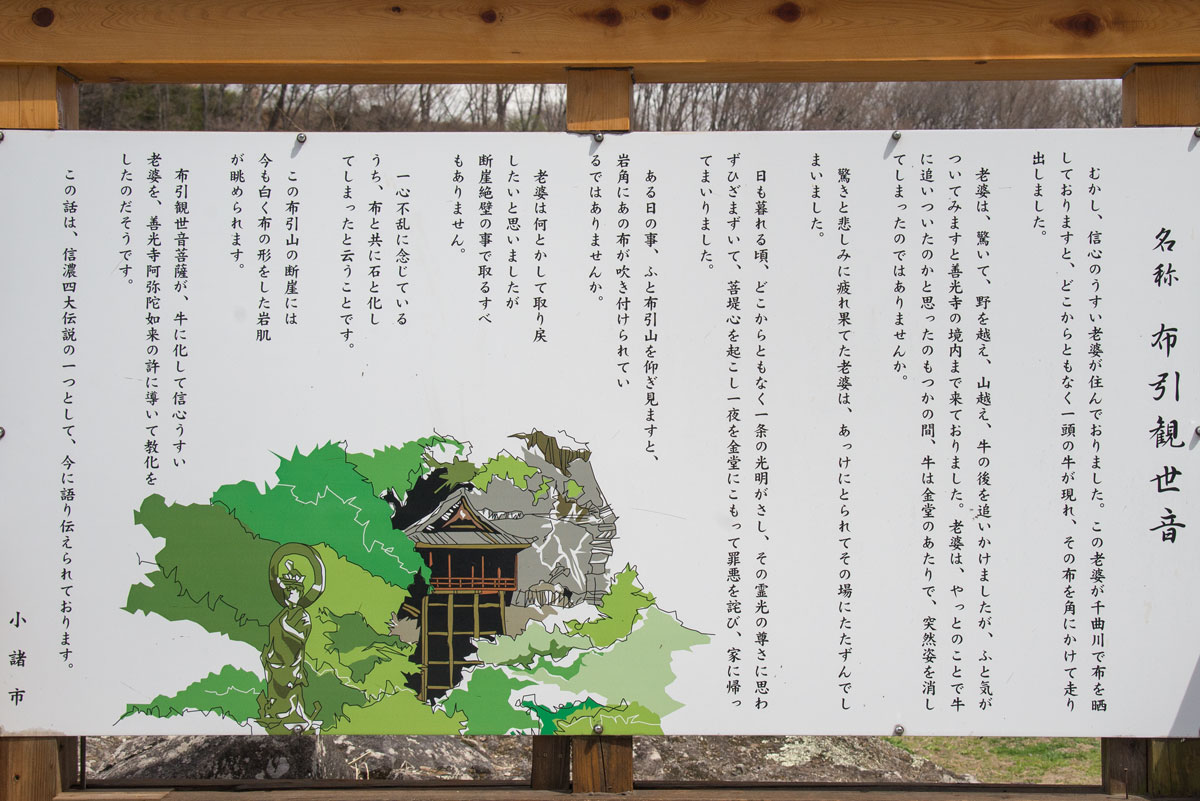 名称 布引観世音
むかし、信心のうすい老婆が住んでおりました。この老婆が千曲川で布を晒
しておりますと、どこからともなく一頭の牛が現れ、その布を角にかけて走り
出しました。
老婆は、驚いて、野を越え、山越え、牛の後を追いかけましたが、ふと気が
ついてみますと善光寺の境内まで来ておりました。老婆は、やっとのことで牛
に追いついたのかと思ったのもつかの間、牛は金堂のあたりで、突然姿を消し
てしまったのではありませんか。
驚きと悲しみに疲れ果てた老婆は、あっけにとられてその場にたたずんでし
まいました。
日も暮れる頃、どこからともなく一条の光明がさし、その霊光の尊さに思わ
ずひざまずいて、菩堤心を起こし一夜を金堂にこもって罪悪を詫び、家に帰っ
てまいりました。
ある日の事、ふと布引山を仰ぎ見ますと、
岩角にあの布が吹き付けられてい
るではありませんか。
老婆は何とかして取り戻
したいと思いましたが
断崖絶壁の事で取るすべ
もありません。
一心不乱に念じている
うち、布と共に石と化し
てしまったと云うことです。
この布引山の断崖には
今も白く布の形をした岩肌
が眺められます。
布引観世音菩薩が、牛に化して信心うすい
老婆を、善光寺阿弥陀如来の許に導いて教化を
したのだそうです。
この話は、信濃四大伝説の一つとして、今に語り伝えられております。
小諸市